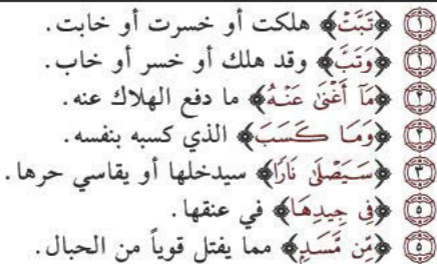 ١ ﴿تَبَّتْ﴾ هلكت أو خسرت أو خابت.
١ ﴿وَتَبَّ﴾ وقد هلك أو خسر أو خاب.
٢ ﴿مَآ أَغْنَىٰ عَنْهُ﴾ ما دفع الهلاك عنه.
٢ ﴿وَمَا كَسَبَ﴾ الذي كسبه بنفسه.
٣ ﴿سَيَصْلَىٰ نَارًا﴾ سيدخلها أو يقاسي حرها.
٥ ﴿فِي جِيدِهَا﴾ في عنقها.
٥ ﴿مِّن مَّسَدٍ﴾ مما يفتل قوياً من الحبال.